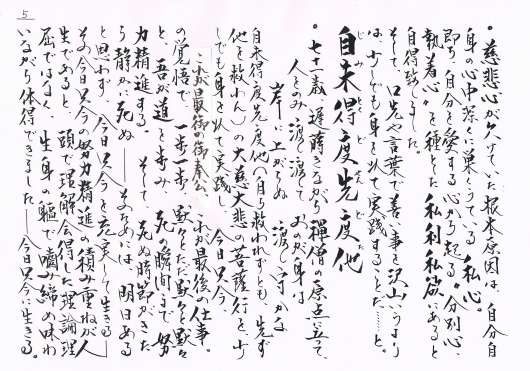 5
• 慈悲心が欠けていた根本原因は、自分自
身の心中深くに巣くうている〝私心〟
即ち〝自分を愛する心から起る〟分別心、
執着心〟を種とした私利私欲にあると
自得致しました。
そして、口先や言葉で善い事を沢山いうより
は、少しでも身を以て実践することだ……と。
自未得度先度他
じみとくどせんどた
• 七十二歳 遅蒔きながら 禅僧の原点に立って、
人をのみ 渡し渡して おのが身は
岸に上がらぬ 渡し守かな
自未得度先度他(自ら救われずとも、先ず
他を救わん)の大慈大悲の菩薩行を少
しでも身を以て実践し、今日只今、
これが最後の御奉公、これが最後の仕事。
の覚悟で、一歩一歩、黙々とただ黙々と黙々
と、吾が道を歩み、死の瞬間まで努
力精進する。そして 死ぬ時節がきた
ら静かに死ぬ――そのためには、明日ある
と思わず、今日只今を充実して生きる
その今日只今の努力精進の積み重ねが人
生であると、頭で理解会得した理論理
屈ではなく、生身の軀で噛み締め味わ
いながら体得できました――今日只今に生きる。